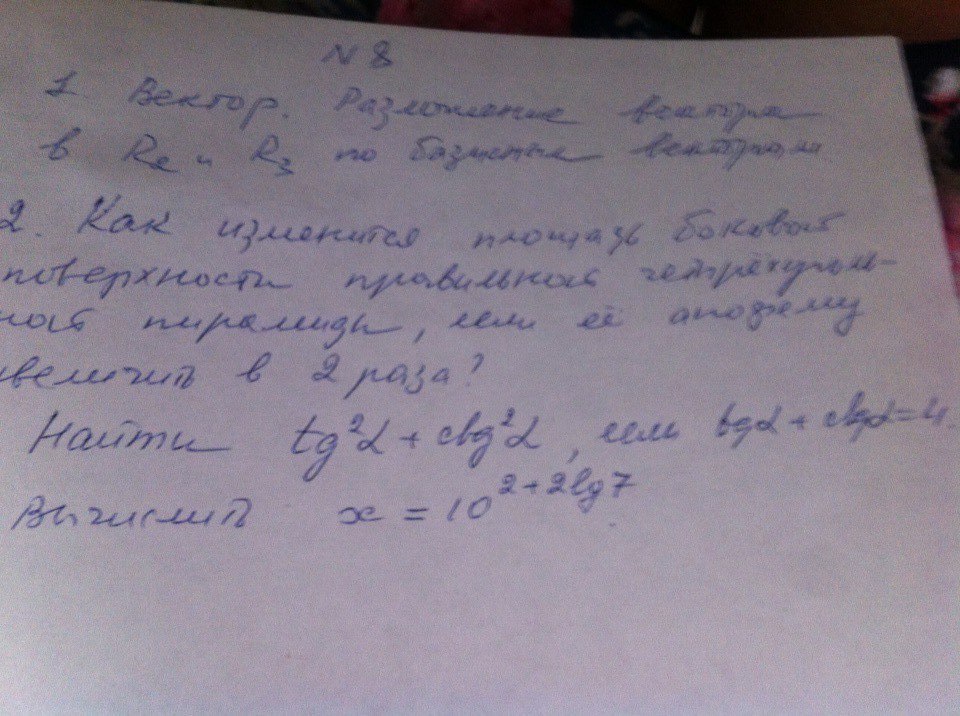 N 8
1 Вектор. Разложение вектора
в R2 и R3 по базисным векторам
2. Как изменится площадь боковой
поверхности правильной четырёхуголь-
ной пирамиды, если её апофему
увеличить в 2 раза?
Найти tg²α + ctg²α, если tgα + ctgα = 4.
Вычислить x = 10^(2+2lg7)